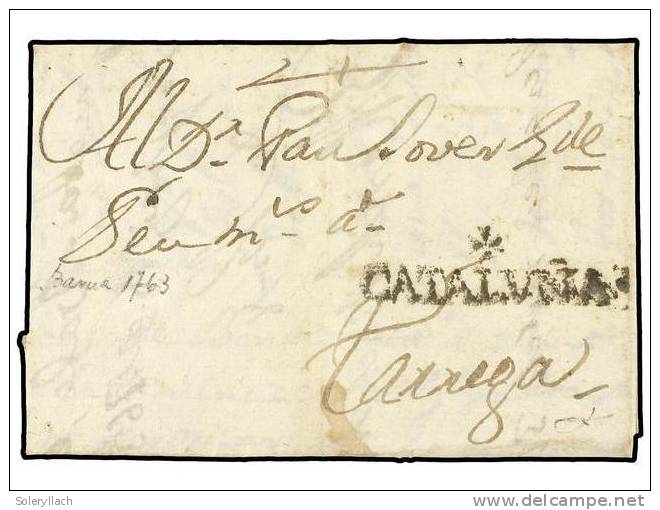 Al Dr. Pau Sover Gde
m.s ds
Barna 1763
CATALUÑA
Tarrega
Soleryllach
delcampe.net